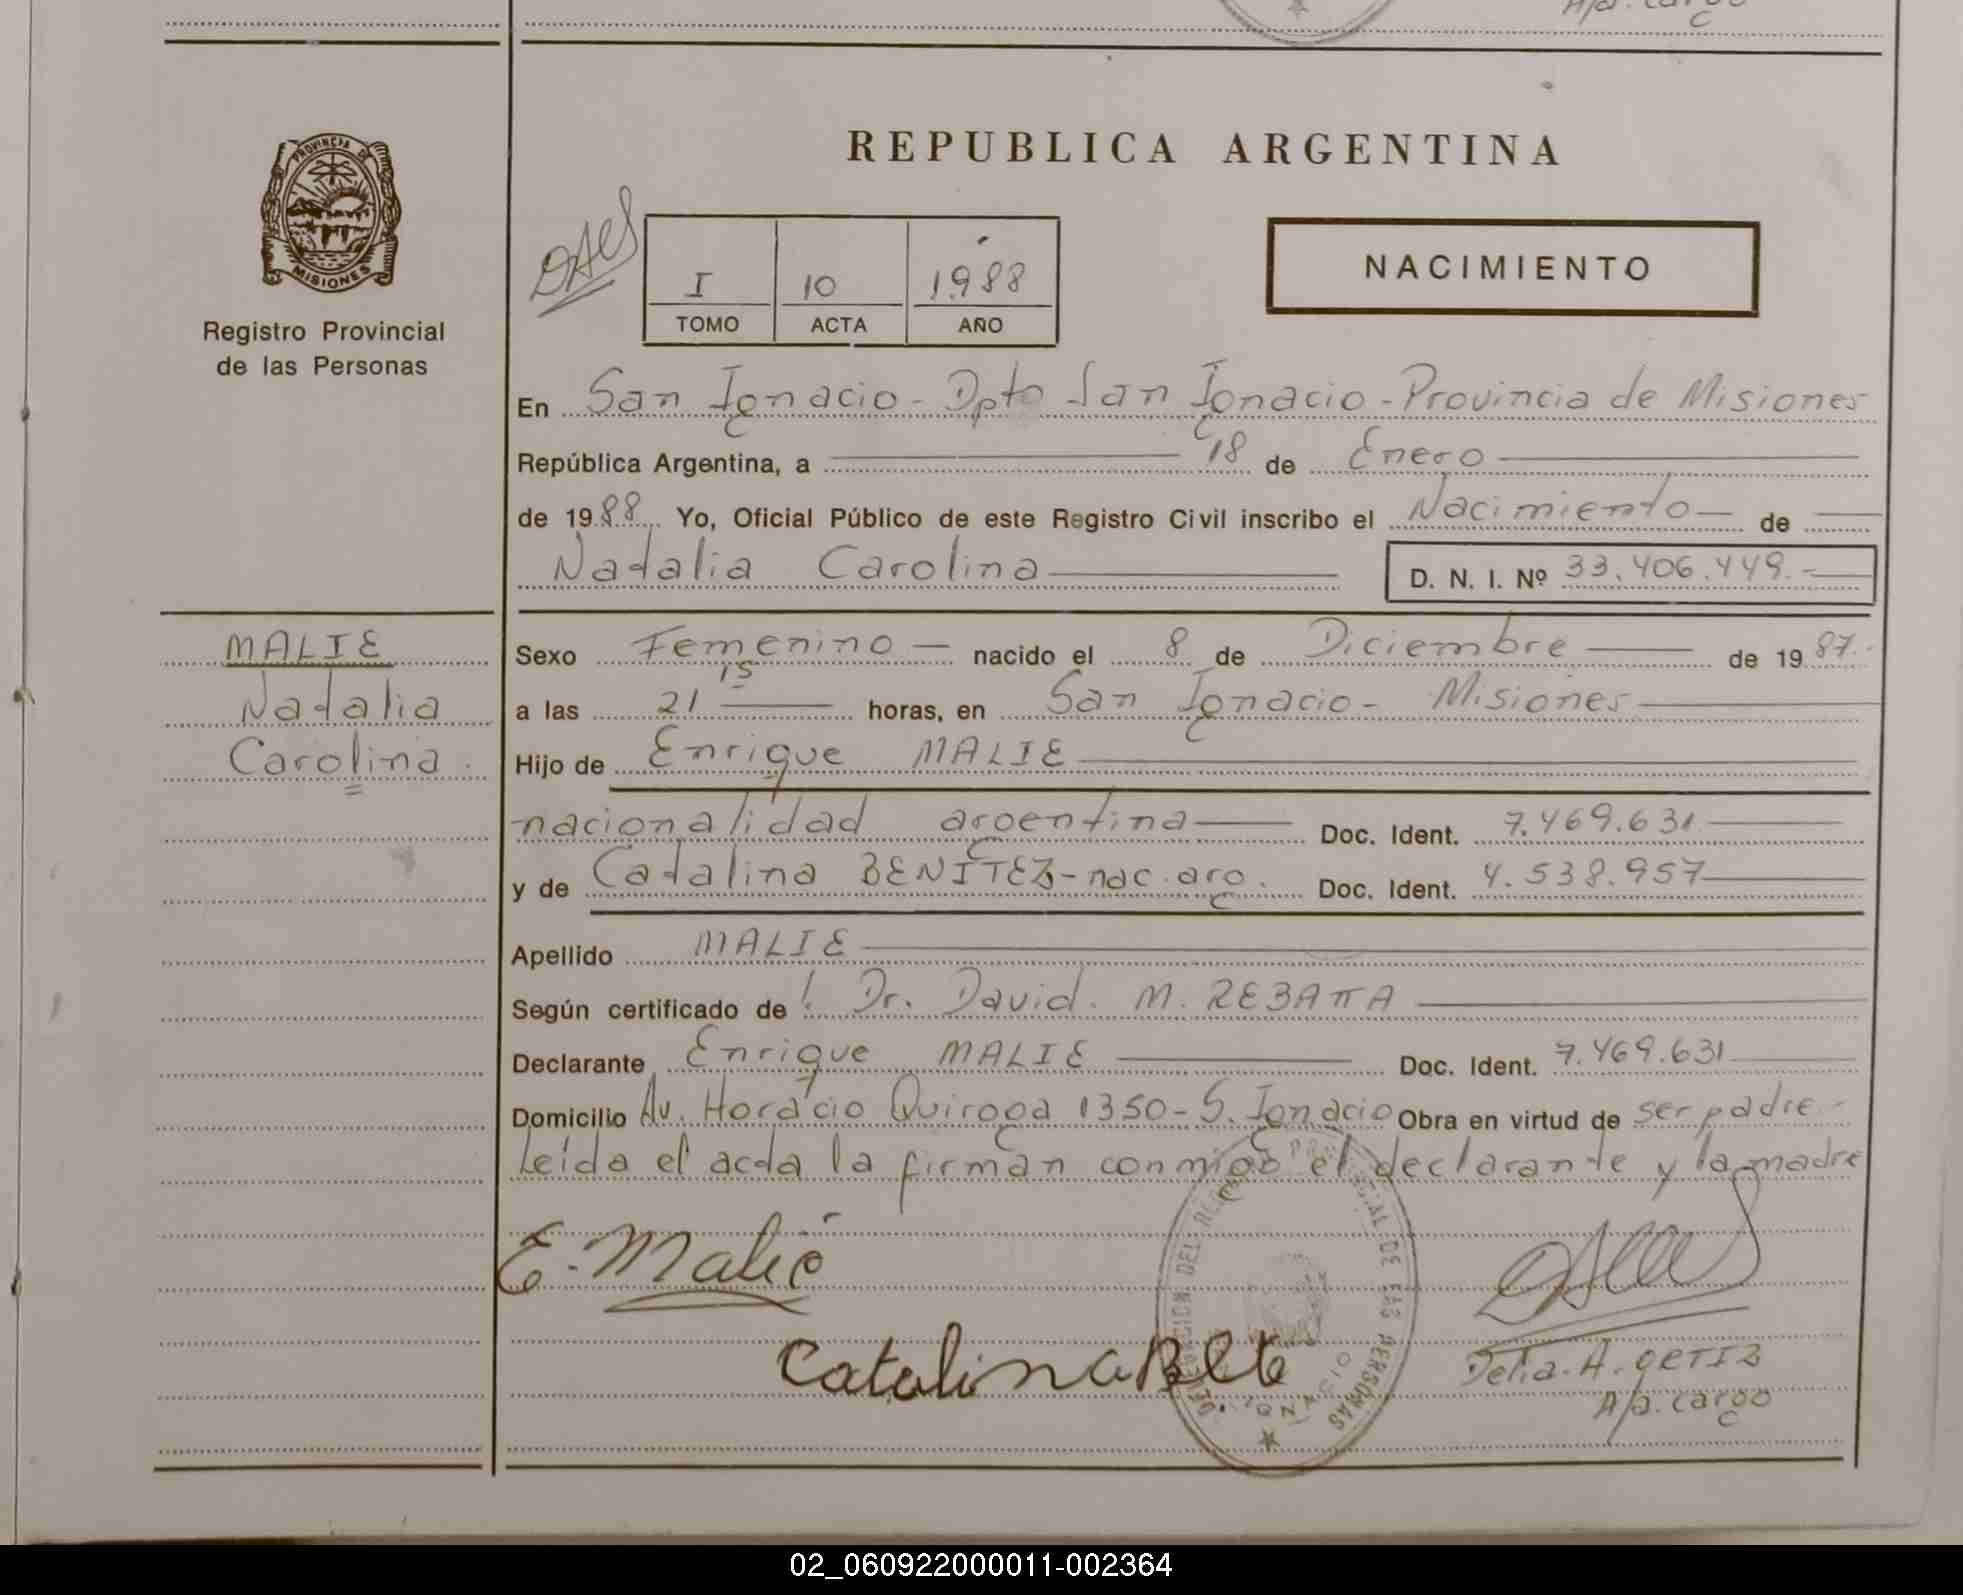 A/a. cargo
REPUBLICA ARGENTINA
PROVINCIA DE
MISIONES
Registro Provincial
de las Personas
I 10 1.988
TOMO ACTA AÑO
NACIMIENTO
En San Ignacio - Dpto San Ignacio - Provincia de Misiones
República Argentina, a 18 de Enero
de 1988 Yo, Oficial Público de este Registro Civil inscribo el Nacimiento de
Natalia Carolina D. N. I. Nº 33.406.449.-
MALIE
Natalia
Carolina.
Sexo Femenino nacido el 8 de Diciembre de 1987.
a las 21 15 horas, en San Ignacio - Misiones
Hijo de Enrique MALIE
nacionalidad argentina Doc. Ident. 7.469.631
y de Catalina BENITEZ - nac. arg. Doc. Ident. 4.538.957
Apellido MALIE
Según certificado de: Dr. David. M. REBATTA
Declarante Enrique MALIE Doc. Ident. 7.469.631
Domicilio Av. Horacio Quiroga 1350 - S. Ignacio Obra en virtud de ser padre.-
Leída el acta la firman conmigo el declarante y la madre
E. Malié
Catalina B de
DELEGACION DEL REGISTRO PROVINCIAL DE LAS PERSONAS
Delia. A. ORTIZ
A/a. cargo
02_060922000011-002364